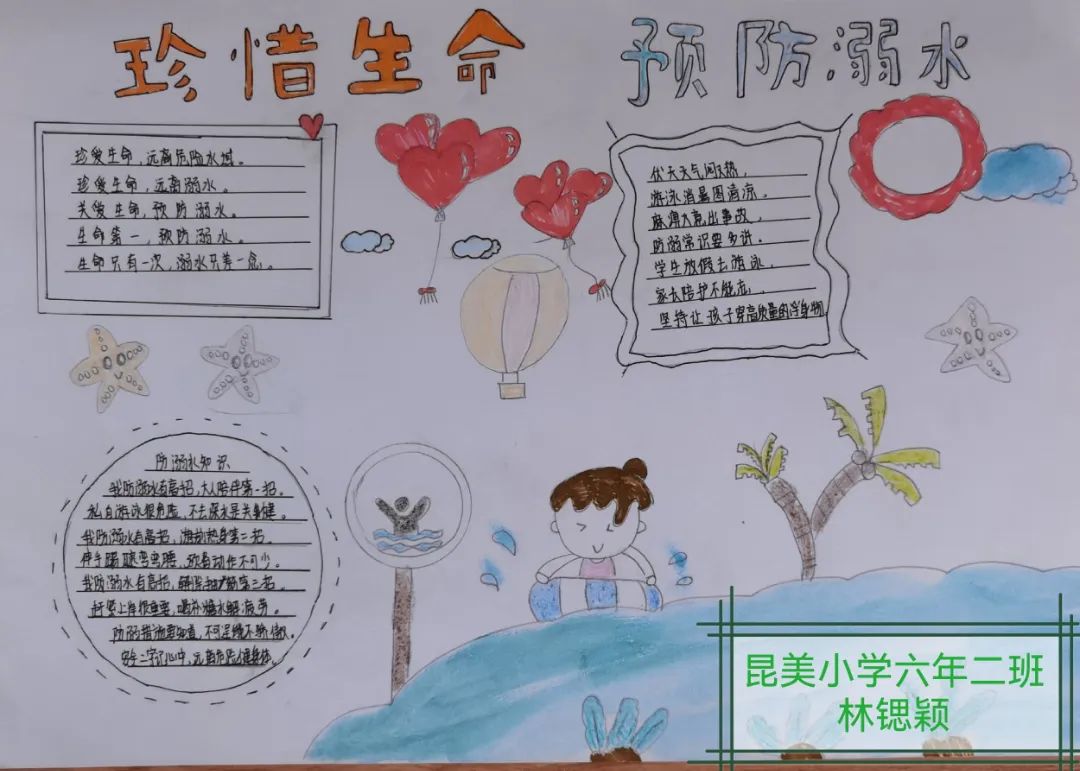 珍惜生命 预防溺水
珍爱生命，远离危险水域。
珍爱生命，远离溺水。
关爱生命，预防溺水。
生命第一，预防溺水。
生命只有一次，溺水只差一念。
伏天天气闷又热，
游泳消暑图清凉。
麻痹大意出事故，
防溺常识要多讲。
学生放假去游泳，
家长陪护不能忘，
坚持让孩子穿高质量的浮身物
防溺水知识
我防溺水有高招，大人陪伴第一招。
私自游泳很危险，不去深水是关键。
我防溺水有高招，游前热身第二招。
伸手踢腿弯弯腰，预备动作不可少。
我防溺水有高招，解除抽筋第三招。
赶紧上岸很重要，喝补糖水解疲劳。
防溺措施要知道，不可逞强不骄傲。
安全二字记心中，远离危险健身体。
昆美小学六年二班
林锶颖